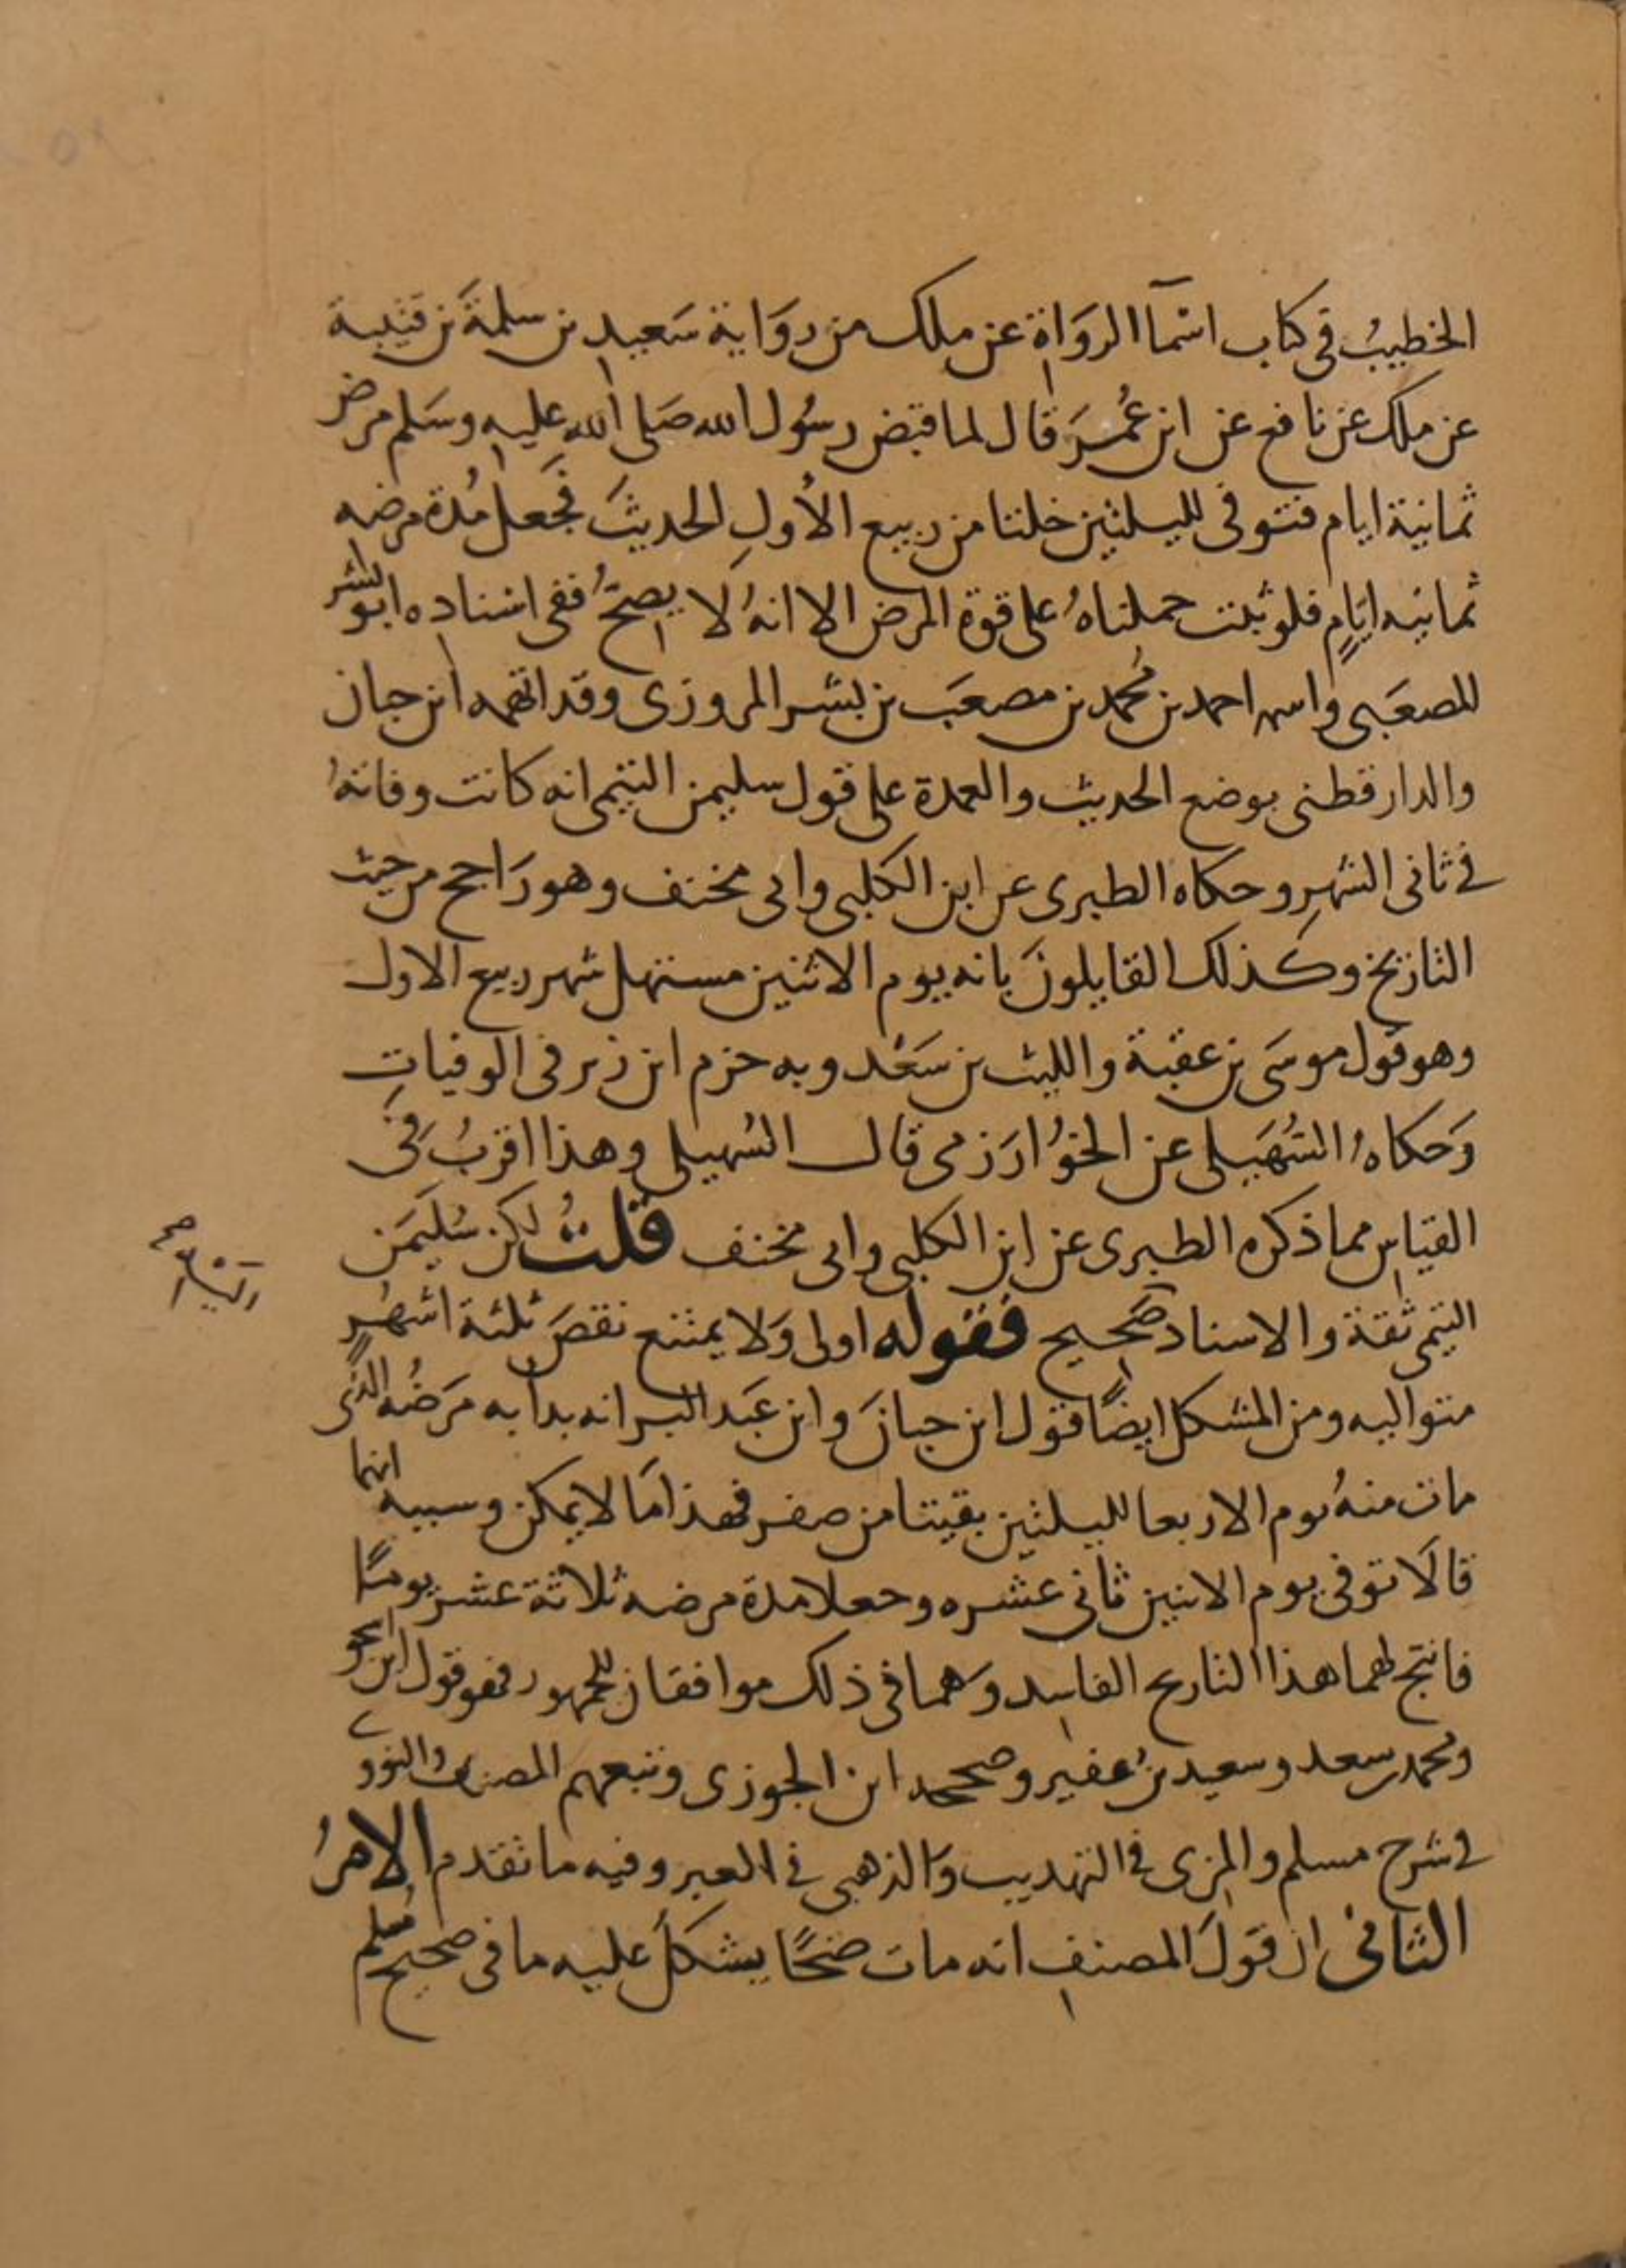 الخطيبُ فى كتاب اسمآ الرواة عن ملك من رواية سعيد بن سلمة بن قتيبة
عن ملك عن نافع عن ابن عمر قال لما قبض رسول الله صلى الله عليه وسلم مرض
ثمانية ايام فتوفى لليلتين خلتا من ربيع الأولِ الحديثَ فجعل مُدة مرضه
ثمانيه ايامٍ فلو ثبت حملناهُ على قوة المرض الا انهُ لا يصحُ ففى اسناده ابو بشر
المصعبى واسمه احمد بن محمد بن مصعب بن بشر المروزى وقد اتهمه ابن حبان
والدارقطنى بوضع الحديث والعمدة على قول سليمن التيمى انه كانت وفاتهُ
فى ثانى الشهرِ وحكاه الطبرى عن ابن الكلبى وابى مخنف وهو راجح من حيث
التاريخ وكذلك القايلونَ بانه يوم الاثنين مستهل شهر ربيع الاول
وهو قول موسَى بن عقبة والليث بن سَعْد وبه جزم ابن زبر فى الوفياتِ
وَحكاهُ السُهَيلى عن الخوُارَزمى قال السُهيلى وهذا اقربُ فى
القياس مما ذكره الطبرى عن ابن الكلبى وابى مخنف قلتُ لكن سُليَمَن
التيمى ثقة والاسناد صَحيح فقوله اولى وَلا يمتنع نقصَ ثلثة اشهُرٍ
متواليه ومن المشكل ايضًا قول ابن حبانَ وابن عَبد البر انه بدا به مَرضُه الذى
مات منهُ يوم الاربعا لليلتين بقيتا من صفر فهذا مَا لا يمكن وسببه انهما
قالَا توفى يوم الاثنين ثانى عشره وجعلا مدة مرضه ثلاثة عشر يومًا
فانتج لهما هذا التاريخ الفاسد وَهما فى ذلك موافقان للجمهور فهو قول ابن اسحق
ومحمد بن سعد وسعيد بن عفير وصححه ابن الجوزى وتبعهم المصنف والنووى
فى شرح مسلم والمزى فى التهذيب وَالذهبى فى العبر وفيه ما تقدم الامرُ
الثانى ان قولَ المصنفِ انه مات ضحًا يشكلَ عليه ما فى صحيح مُسلم